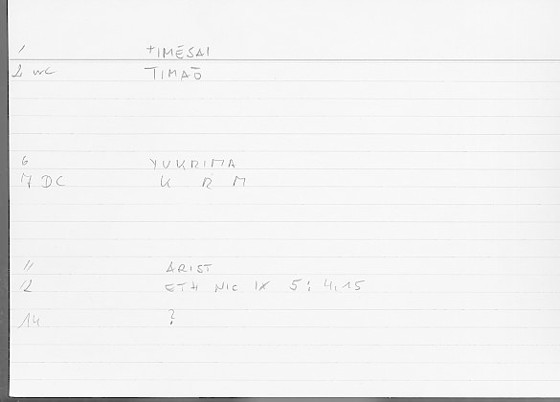 1 TIMĒSAI
2 WC TIMAŌ
6 YUKRIMA
7 DC K R M
11 ARIST
12 ETH NIC IX 5: 4.15
14 ?